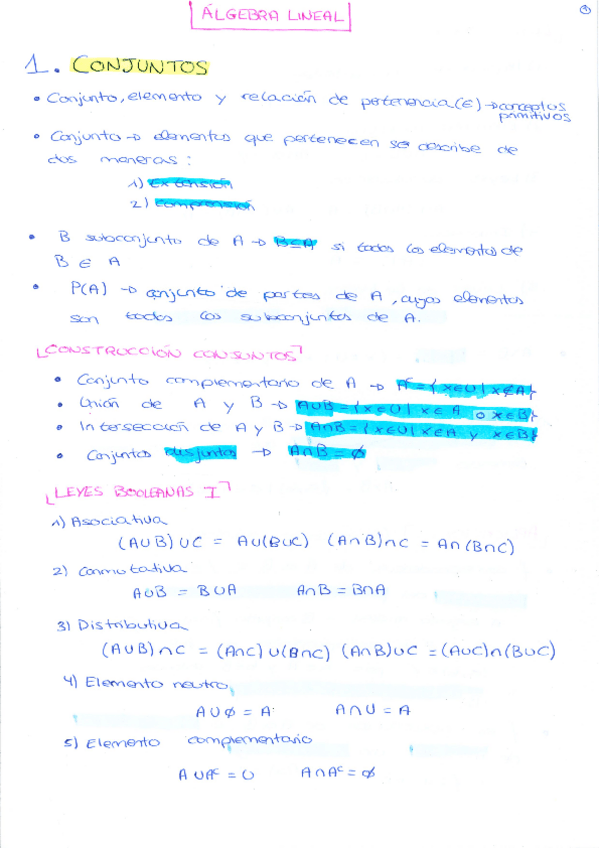 ÁLGEBRA LINEAL
1
1. CONJUNTOS
• Conjunto, elemento y relación de pertenencia (∈) → conceptos
primitivos
• Conjunto → elementos que pertenecen se describe de
dos maneras:
1) extensión
2) comprensión
• B subconjunto de A → B⊆A si todos los elementos de
B ∈ A
• P(A) → conjunto de partes de A, cuyos elementos
son todos los subconjuntos de A.
CONSTRUCCIÓN CONJUNTOS
• Conjunto complementario de A → Aᶜ = {x∈U | x∉A}
• Unión de A y B → A∪B = {x∈U | x∈A o x∈B}
• Intersección de A y B → A∩B = {x∈U | x∈A y x∈B}
• Conjuntos disjuntos → A∩B = ∅
LEYES BOOLEANAS I
1) Asociativa
(A∪B)∪C = A∪(B∪C) (A∩B)∩C = A∩(B∩C)
2) Conmutativa
A∪B = B∪A A∩B = B∩A
3) Distributiva
(A∪B)∩C = (A∩C)∪(B∩C) (A∩B)∪C = (A∪C)∩(B∪C)
4) Elemento neutro
A∪∅ = A A∩U = A
5) Elemento complementario
A∪Aᶜ = U A∩Aᶜ = ∅